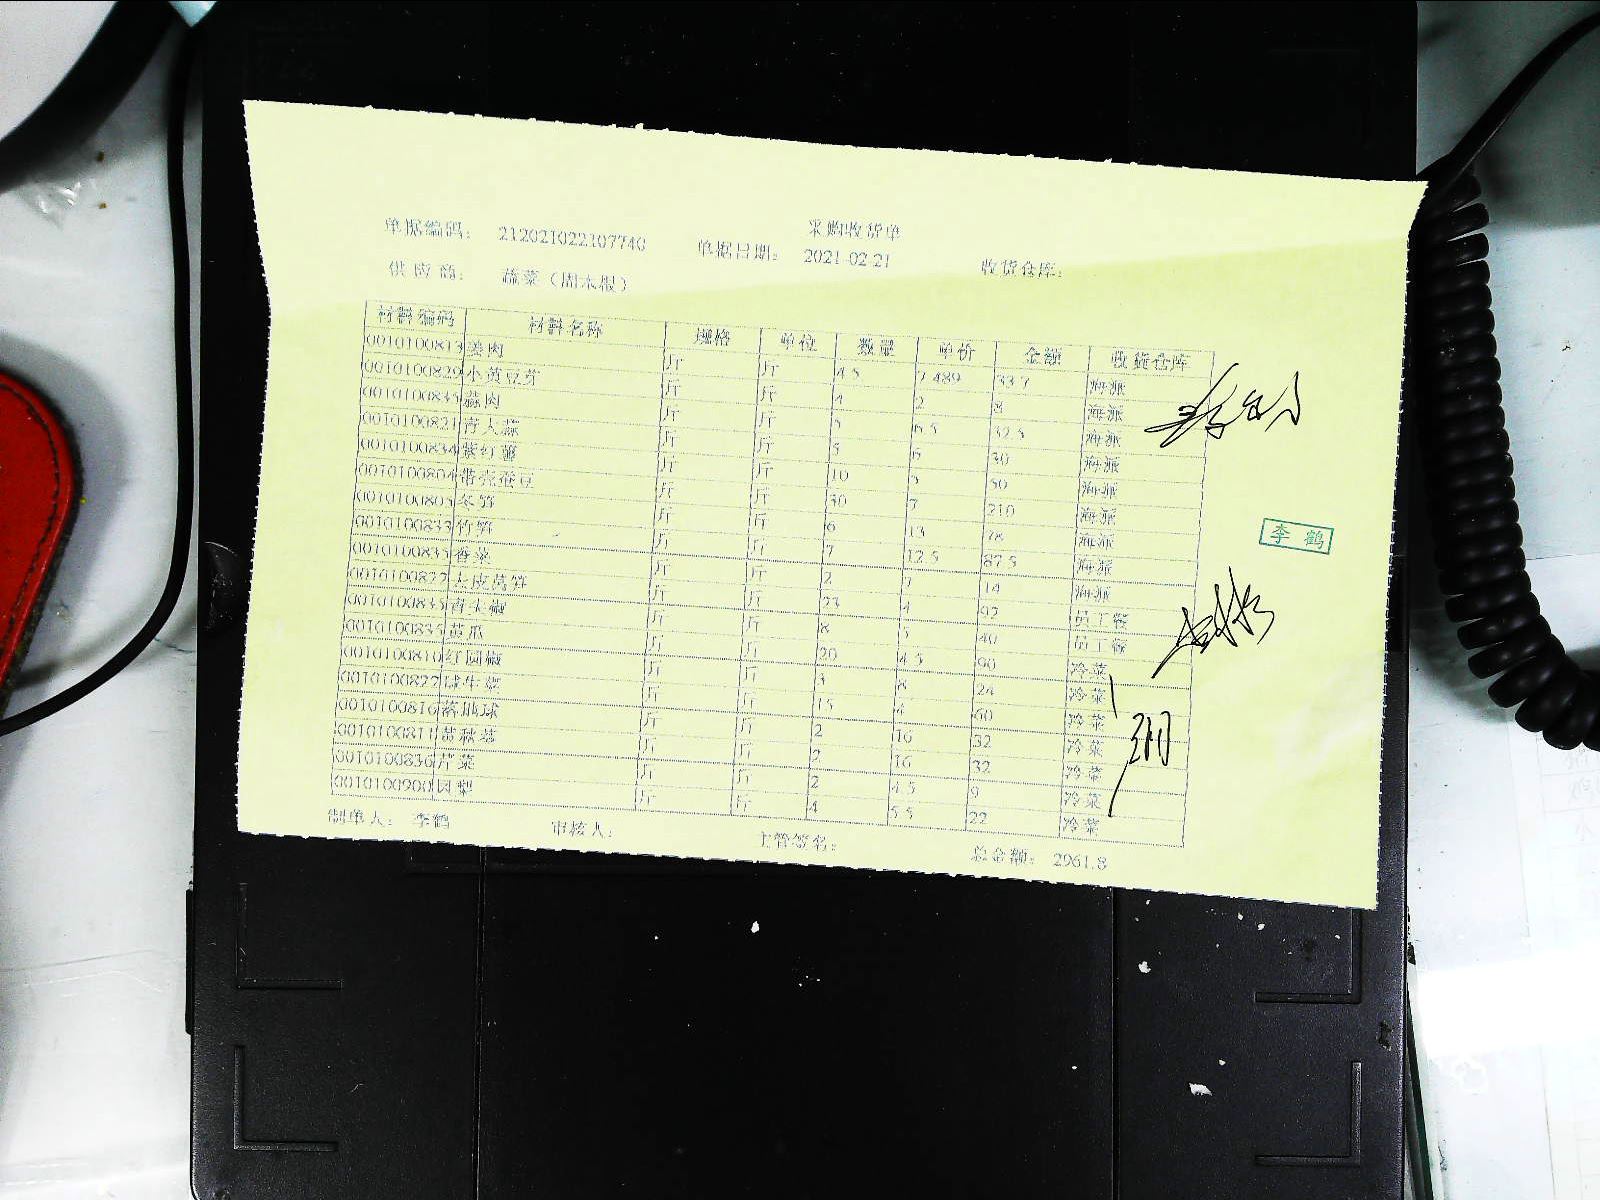 采购收货单
单据编码： 212021022107740 单据日期： 2021-02-21 收货仓库：
供应商： 蔬菜（周木根）
材料编码 材料名称 规格 单位 数量 单价 金额 收货仓库
0010100813 姜肉 斤 斤 4.5 7.489 33.7 海派
0010100829 小黄豆芽 斤 斤 4 2 8 海派
001010083 蒜肉 斤 斤 5 6.5 32.5 海派
0010100821 青大蒜 斤 斤 5 6 30 海派
0010100834 紫红薯 斤 斤 10 5 50 海派
0010100804 带壳蚕豆 斤 斤 30 7 210 海派
0010100805 冬笋 斤 斤 6 13 78 海派
0010100833 竹笋 斤 斤 7 12.5 87.5 海派
001010083 香菜 斤 斤 2 7 14 海派
0010100822 去皮莴笋 斤 斤 23 4 92 员工餐
001010083 青尖椒 斤 斤 8 5 40 员工餐
001010083 黄瓜 斤 斤 20 4.5 90 冷菜
0010100810 红圆椒 斤 斤 3 8 24 冷菜
0010100822 斤 斤 15 4 60 冷菜
0010100816 斤 斤 2 16 32 冷菜
0010100811 黄秋葵 斤 斤 2 16 32 冷菜
0010100836 芹菜 斤 斤 2 4.5 9 冷菜
0010100900 斤 斤 4 5.5 22 冷菜
制单人： 李鹤 审核人： 主管签名： 总金额： 2961.8
李鹤